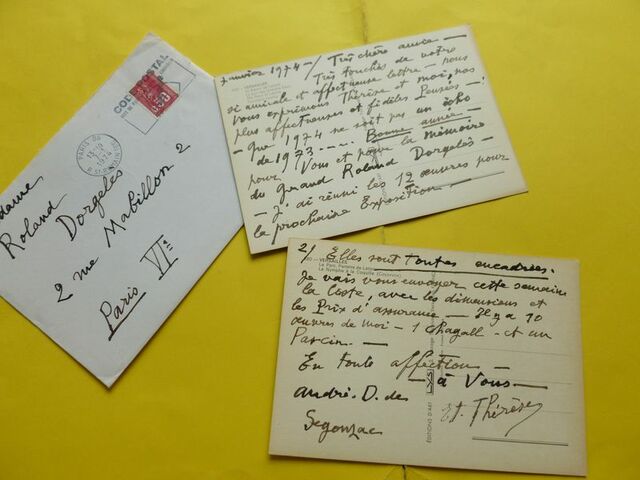 CODE POSTAL
PARIS 08
13-10
1975
Madame
Roland
Dorgelès
2 rue Mabillon 2
Paris VIe
Janvier 1974 - / Très chère amie -
Très touchés de votre
si amicale et affectueuse lettre - nous
vous exprimons Thérèse et moi, nos
plus affectueuses et fidèles Pensées -
- Que 1974 ne soit pas un écho
de 1973 - ... Bonne année -
pour Vous et pour la mémoire
du grand Roland Dorgelès -
- J'ai réuni les 12 œuvres pour
la prochaine Exposition -
2/ Elles sont toutes encadrées.
VERSAILLES
Le Parc, Parterre de Latone
La Nymphe à la Coquille (Coysevox)
Je vais vous envoyer cette semaine
la Liste, avec les dimensions et
les Prix d'assurance - Il y a 10
œuvres de moi - 1 Chagall - et un
Pascin. -
En toute affection -
- à Vous -
André. D. de
Segonzac
et Thérèse
EDITIONS D'ART LYS